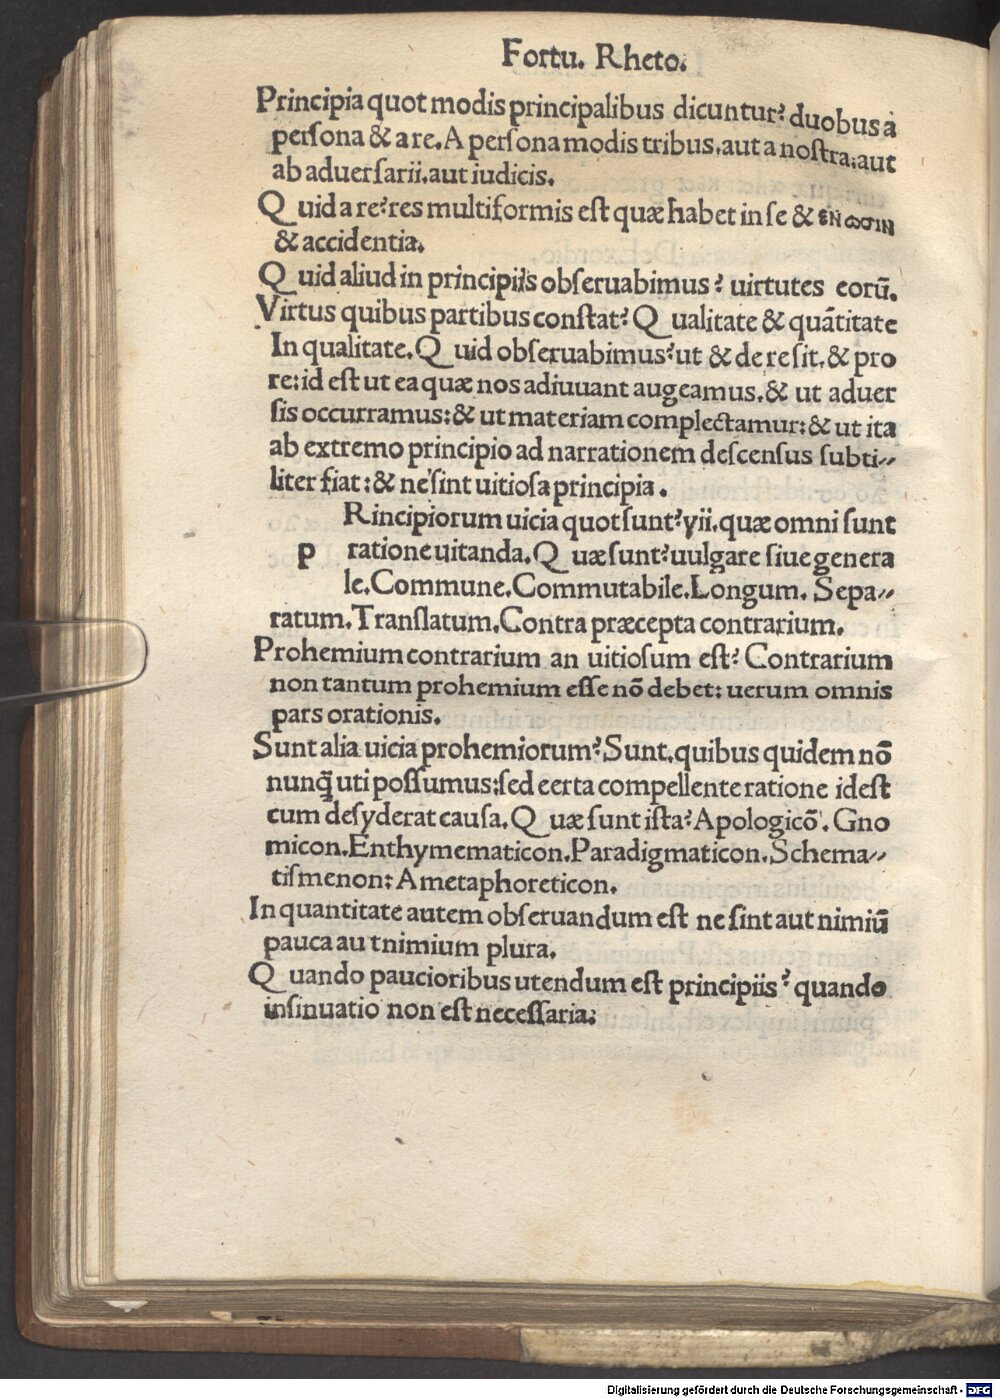 Fortu. Rheto.
Principia quot modis principalibus dicuntur? duobus a
persona & a re. A persona modis tribus. aut a nostra. aut
ab aduersarii. aut iudicis.
Q uid a re? res multiformis est quæ habet in se & ɛɴωσιɴ
& accidentia.
Q uid aliud in principiis obseruabimus? uirtutes eorū.
Virtus quibus partibus constat? Q ualitate & quātitate
In qualitate. Q uid obseruabimus? ut & de re sit. & pro
re: id est ut ea quæ nos adiuuant augeamus. & ut aduer
sis occurramus: & ut materiam complectamur: & ut ita
ab extremo principio ad narrationem descensus subti⸗
liter fiat: & ne sint uitiosa principia.
Rincipiorum uicia quot sunt? yii. quæ omni sunt
p ratione uitanda. Q uæ sunt? uulgare siue genera
le. Commune. Commutabile. Longum. Sepa⸗
ratum. Translatum. Contra præcepta contrarium.
Prohemium contrarium an uitiosum est? Contrarium
non tantum prohemium esse nō debet: uerum omnis
pars orationis.
Sunt alia uicia prohemiorum? Sunt. quibus quidem nō
nunq̄ uti possumus: sed eerta compellente ratione idest
cum desyderat causa. Q uæ sunt ista? Apologicō. Gno
micon. Enthymematicon. Paradigmaticon. Schema⸗
tismenon: Ametaphoreticon.
In quantitate autem obseruandum est ne sint aut nimiū
pauca au tnimium plura.
Q uando paucioribus utendum est principiis? quando
insinuatio non est necessaria:
Digitalisierung gefördert durch die Deutsche Forschungsgemeinschaft - DFG